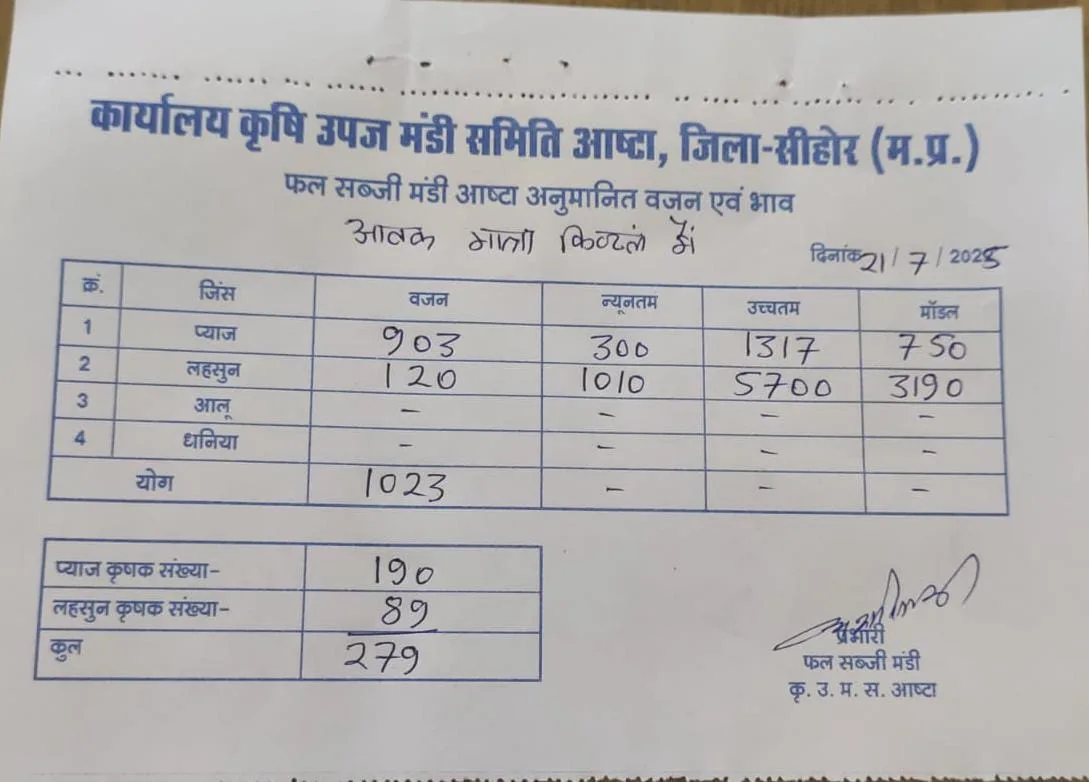 कार्यालय कृषि उपज मंडी समिति आष्टा, जिला-सीहोर (म.प्र.)
फल सब्जी मंडी आष्टा अनुमानित वजन एवं भाव
आवक मात्रा क्विटलं में
दिनांक 21/7/2025
क्रं. जिंस वजन न्यूनतम उच्चतम मॉडल
1 प्याज 903 300 1317 750
2 लहसुन 120 1010 5700 3190
3 आलू - - - -
4 धनिया - - - -
योग 1023 - - -
प्याज कृषक संख्या- 190
लहसुन कृषक संख्या- 89
कुल 279
प्रभारी
फल सब्जी मंडी
कृ. उ. म. स. आष्टा